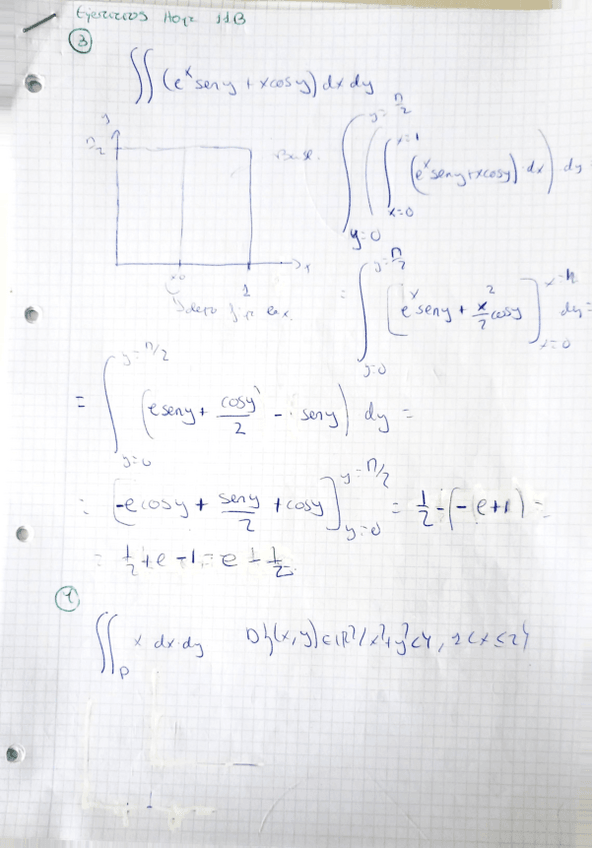 Ejercicios Hoja 11B
③
∬ (eˣ sen y + x cos y) dx dy
π/2
x0
1
x
∫_{y=0}^{y=π/2} ( ∫_{x=0}^{x=1} (eˣ sen y + x cos y) dx ) dy
= ∫_{y=0}^{y=π/2} [eˣ sen y + x²/2 cos y]_{x=0} dy =
= ∫_{y=0}^{y=π/2} (e sen y + cos y/2 - sen y) dy =
= [-e cos y + sen y/2 + cos y]_{y=0}^{y=π/2} = 1/2 - (-e+1) =
= 1/2 + e - 1 = e - 1/2
④
∬_D x dx dy D{(x,y)∈ℝ²/x²+y²<4, 1<x≤2}